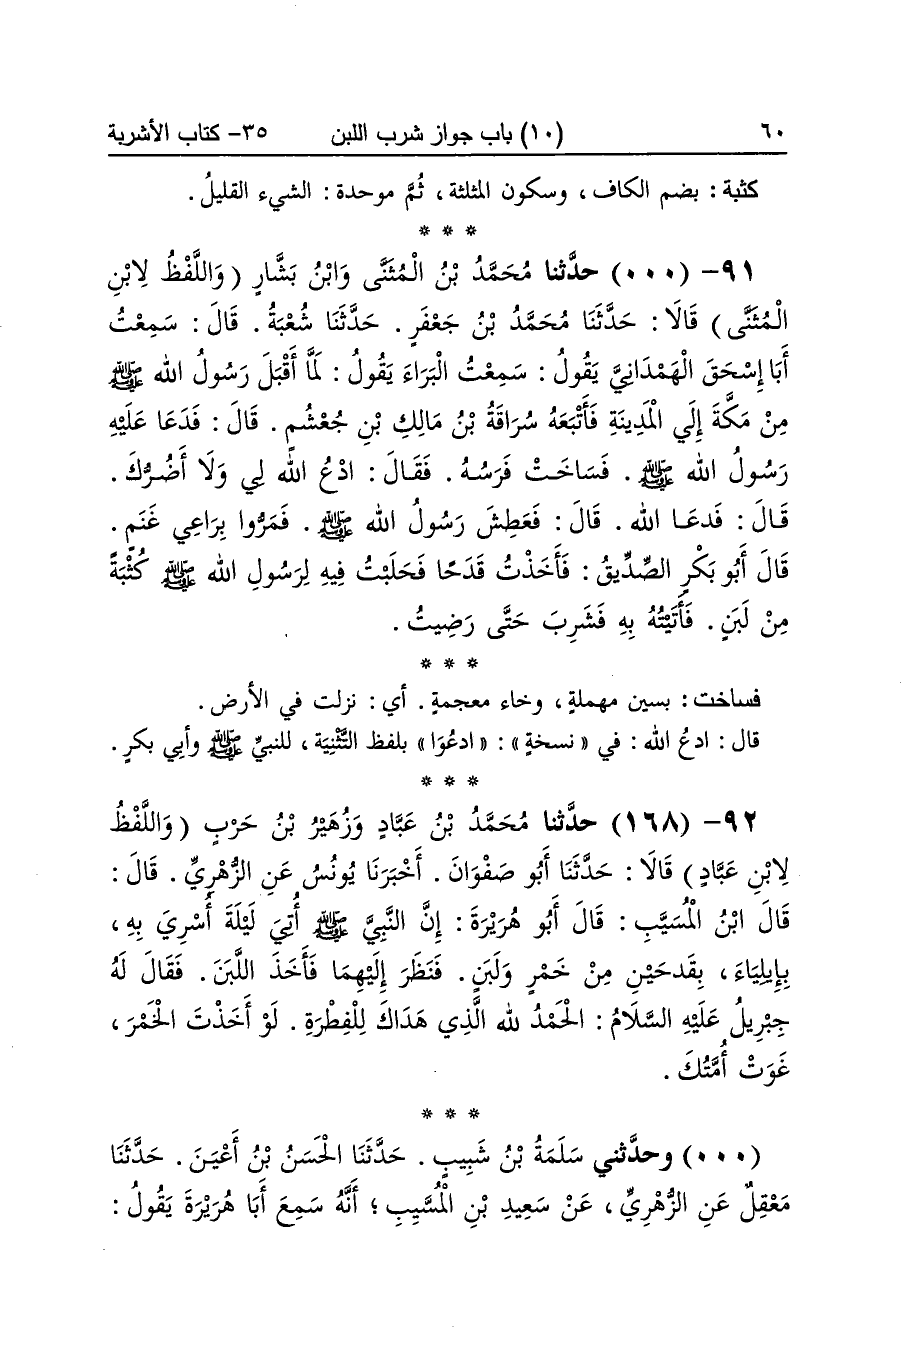 ٦٠ (١٠) باب جواز شرب اللبن ٣٥- كتاب الأشربة
كثبة : بضم الكاف ، وسكون المثلثة ، ثُمَّ موحدة : الشيء القليلُ .
* * *
٩١- (٠٠٠) حدَّثنا مُحَمَّدُ بْنُ الْمُثَنَّى وَابْنُ بَشَّارٍ ( وَاللَّفْظُ لِابْنِ
الْمُثَنَّى ) قَالَا : حَدَّثَنَا مُحَمَّدُ بْنُ جَعْفَرٍ . حَدَّثَنَا شُعْبَةُ . قَالَ : سَمِعْتُ
أَبَا إِسْحَقَ الْهَمْدَانِيَّ يَقُولُ : سَمِعْتُ الْبَرَاءَ يَقُولُ : لَمَّا أَقْبَلَ رَسُولُ الله ﷺ
مِنْ مَكَّةَ إِلَي الْمَدِينَةِ فَأَتْبَعَهُ سُرَاقَةُ بْنُ مَالِكِ بْنِ جُعْشُمٍ . قَالَ : فَدَعَا عَلَيْهِ
رَسُولُ الله ﷺ . فَسَاخَتْ فَرَسُهُ . فَقَالَ : ادْعُ الله لِي وَلَا أَضُرُّكَ .
قَالَ : فَدعَا الله . قَالَ : فَعَطِشَ رَسُولُ الله ﷺ . فَمَرُّوا بِرَاعِي غَنَمٍ .
قَالَ أَبُو بَكْرٍ الصِّدِّيقُ : فَأَخَذْتُ قَدَحًا فَحَلَبْتُ فِيهِ لِرَسُولِ الله ﷺ كُثْبَةً
مِنْ لَبَنٍ . فَأَتَيْتُهُ بِهِ فَشَرِبَ حَتَّى رَضِيتُ .
* * *
فساخت : بسين مهملةٍ ، وخاء معجمةٍ . أي : نزلت في الأرض .
قال : ادعُ الله : في « نسخةٍ » : « ادعُوَا » بلفظ التَّثْنِيَة ، للنبيِّ ﷺ وأبِي بكرٍ .
* * *
٩٢- (١٦٨) حدَّثنا مُحَمَّدُ بْنُ عَبَّادٍ وَزُهَيْرُ بْنُ حَرْبٍ ( وَاللَّفْظُ
لِابْنِ عَبَّادٍ ) قَالَا : حَدَّثَنَا أَبُو صَفْوَانَ . أَخْبَرَنَا يُونُسُ عَنِ الزُّهْرِيِّ . قَالَ :
قَالَ ابْنُ الْمُسَيَّبِ : قَالَ أَبُو هُرَيْرَةَ : إِنَّ النَّبِيَّ ﷺ أُتِيَ لَيْلَةَ أُسْرِيَ بِهِ ،
بِإِيلِيَاءَ ، بِقَدحَيْنِ مِنْ خَمْرٍ وَلَبَنٍ . فَنَظَرَ إِلَيْهِمَا فَأَخَذَ اللَّبَنَ . فَقَالَ لَهُ
جِبْرِيلُ عَلَيْهِ السَّلَامُ : الْحَمْدُ لله الَّذِي هَدَاكَ لِلْفِطْرَةِ . لَوْ أَخَذْتَ الْخَمْرَ ،
غَوَتْ أُمَّتُكَ .
* * *
(٠٠٠) وحدَّثني سَلَمَةُ بْنُ شَبِيبٍ . حَدَّثَنَا الْحَسَنُ بْنُ أَعْيَنَ . حَدَّثَنَا
مَعْقِلٌ عَنِ الزُّهْرِيِّ ، عَنْ سَعِيدِ بْنِ الْمُسَّيِبِ ؛ أَنَّهُ سَمِعَ أَبَا هُرَيْرَةَ يَقُولُ :